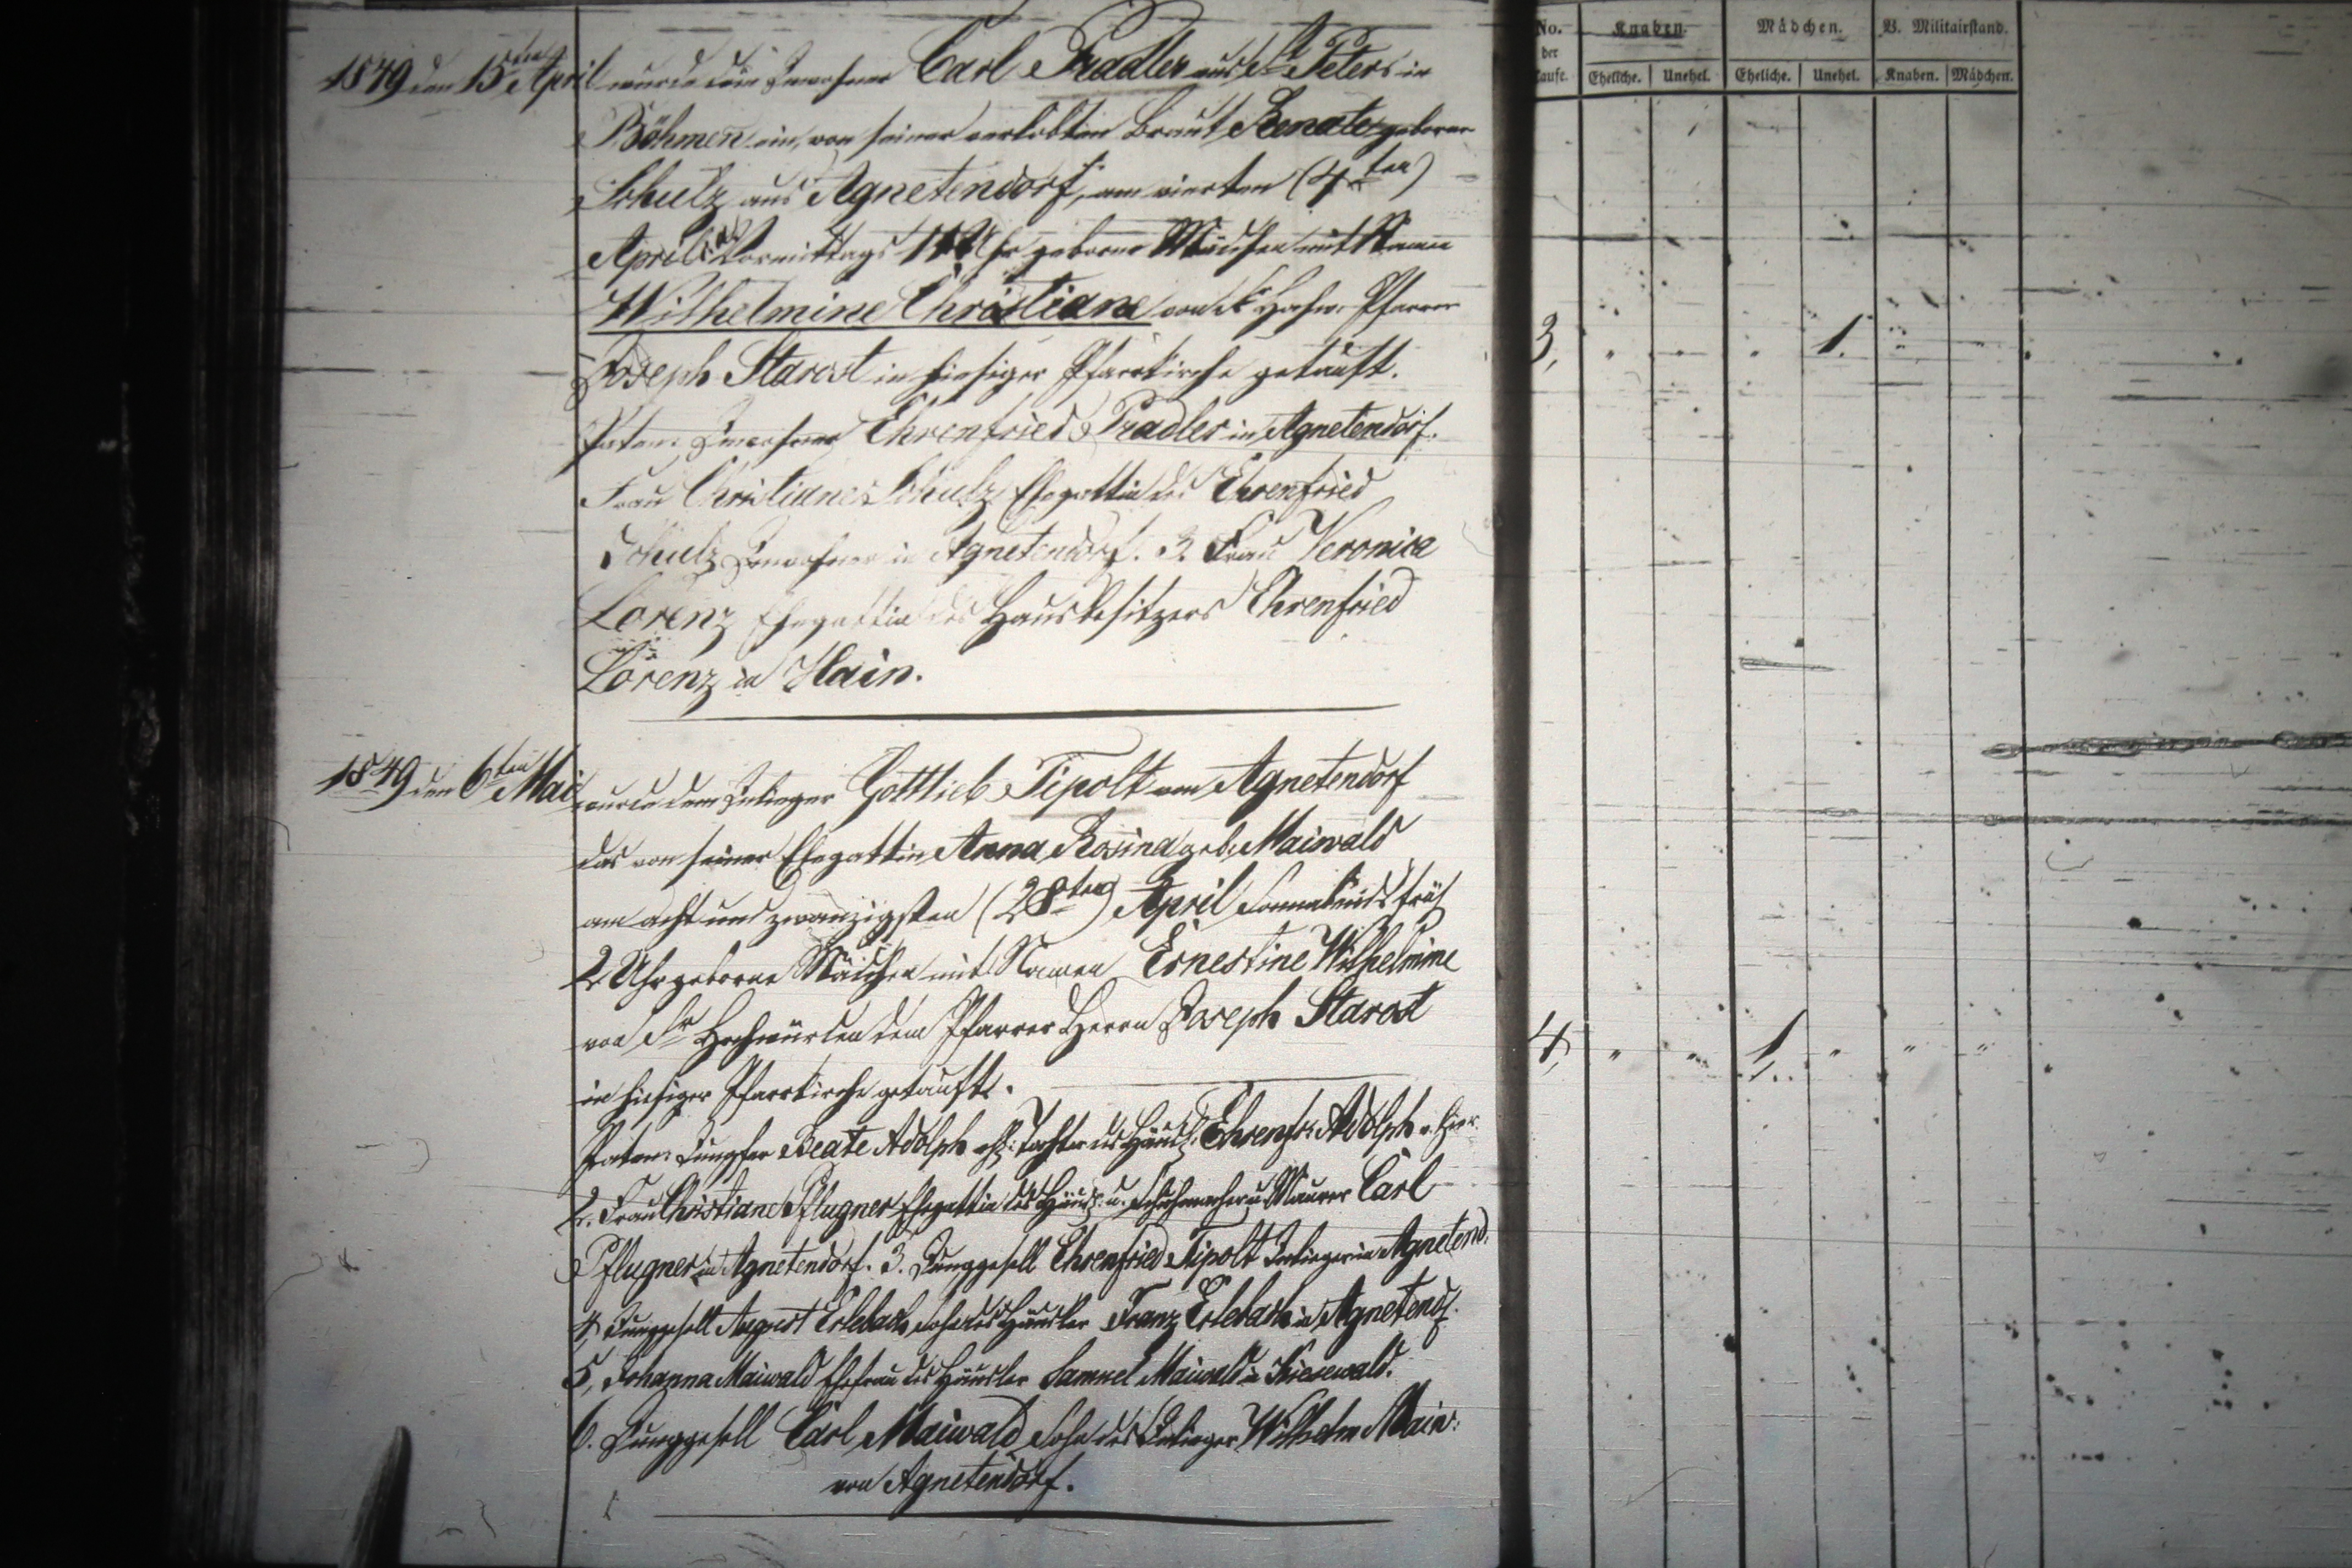 1849 den 15ten April wurde dem Inwohner Carl Pradler aus St. Peter in
Böhmen ein, von seiner verlobten Braut Renate geborne
Schulz aus Agnetendorf, am vierten (4ten)
April Vormittags Uhr geborne Mädchen mit Namen
Wilhelmine Christiane von Sr Hochw. Pfarrer
Joseph Starost in hiesiger Pfarrkirche getauft.
Paten: Inwohner Ehrenfried Pradler in Agnetendorf.
Frau Christiane Schulz Ehegattin des Ehrenfried
Schulz Inwohner in Agnetendorf. 3. Frau Veronica
Lorenz Ehegattin des Hausbesitzers Ehrenfried
Lorenz in Hain.
1849 den 6ten Mai wurde dem Inlieger Gottlieb Tipolt von Agnetendorf
das von seiner Ehegattin Anna Rosina geb. Maiwald
am acht und zwanzigsten (28ten) April Sonnabends früh
2 Uhr geborne Mädchen mit Namen Ernestine Wilhelmine
von Sr Hochwürden dem Pfarrer Herrn Joseph Starost
in hiesiger Pfarrkirche getauft.
Paten: Jungfer Beate Adolph Tochter des Häusl. Ehrenfr. Adolph v. hier.
2. Frau Christiane Pflugner Ehegattin des Häusl. u. Schuhmacher u. Maurer Carl
Pflugner in Agnetendorf. 3. Junggesell Ehrenfried Tipolt Inlieger in Agnetend.
4, Junggesell August Erlebach Sohn des Häusler Franz Erlebach in Agnetendf.
5, Johanna Maiwald Ehefrau des Häusler Samuel Maiwald in Kiesewald.
6. Junggesell Carl Maiwald Sohn des Inlieger Wilhelm Maiw:
von Agnetendorf.
No. der Taufe.
Knaben. Mädchen. B. Militairstand.
Eheliche. Unehel. Eheliche. Unehel. Knaben. Mädchen.
3, " " " 1. "
4, " " 1. " " "